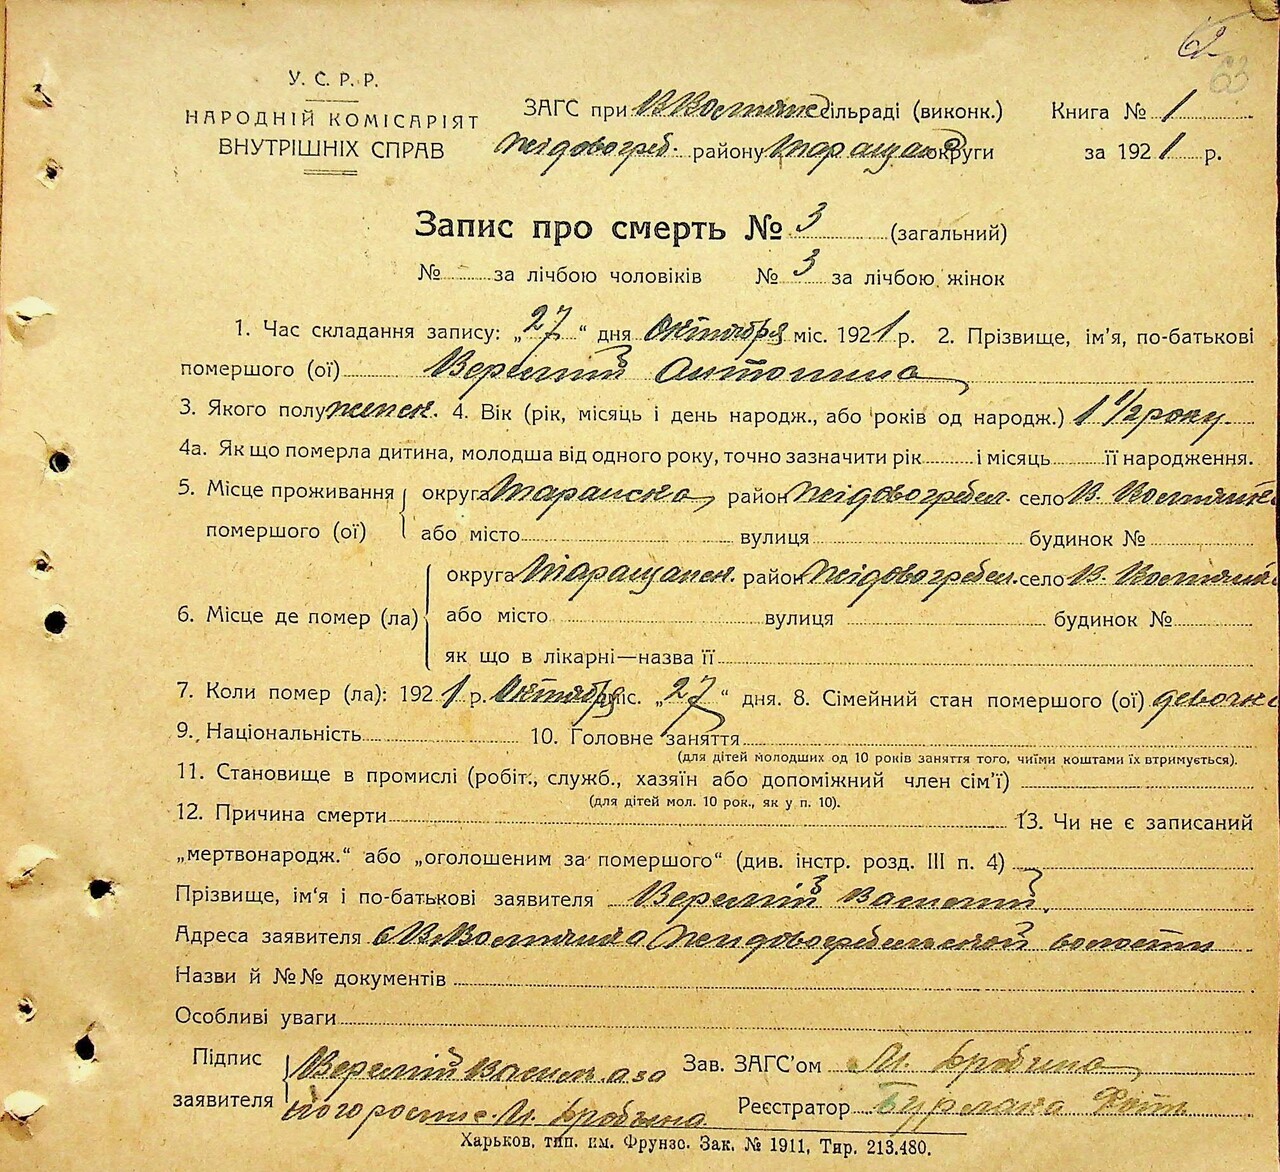 62
63
У. С. Р. Р.
НАРОДНІЙ КОМІСАРІЯТ
ВНУТРІШНІХ СПРАВ
ЗАГС при сільраді (виконк.)
Жидовогреб. району Таращан округи
Книга № 1
за 1921 р.
Запис про смерть № 3 (загальний)
№ за лічбою чоловіків № 3 за лічбою жінок
1. Час складання запису: „27“ дня Октября міс. 1921 р. 2. Прізвище, ім'я, по-батькові
помершого (ої) Веремій Антонина
3. Якого полу женск. 4. Вік (рік, місяць і день народж., або років од народж.) 1 1/2 року
4а. Як що померла дитина, молодша від одного року, точно зазначити рік і місяць її народження.
5. Місце проживання помершого (ої) округа район Жидовогребел. село В.
або місто вулиця будинок №
6. Місце де помер (ла) округа Таращанск. район Жидовогребел. село В.
або місто вулиця будинок №
як що в лікарні—назва її
7. Коли помер (ла): 1921 р. Октября міс. „27“ дня. 8. Сімейний стан помершого (ої) девочка
9. Національність 10. Головне заняття
(для дітей молодших од 10 років заняття того, чиїми коштами їх втримується).
11. Становище в промислі (робіт., служб., хазяїн або допоміжний член сім'ї)
(для дітей мол. 10 рок., як у п. 10).
12. Причина смерти 13. Чи не є записаний
„мертвонародж.“ або „оголошеним за помершого“ (див. інстр. розд. III п. 4)
Прізвище, ім'я і по-батькові заявителя Веремій Василий
Адреса заявителя волости
Назви й №№ документів
Особливі уваги
Підпис заявителя Веремій Василь а за
Зав. ЗАГС'ом
Реєстратор Бурлака
Харьков, тип. им. Фрунзе. Зак. № 1911, Тир. 213.480.